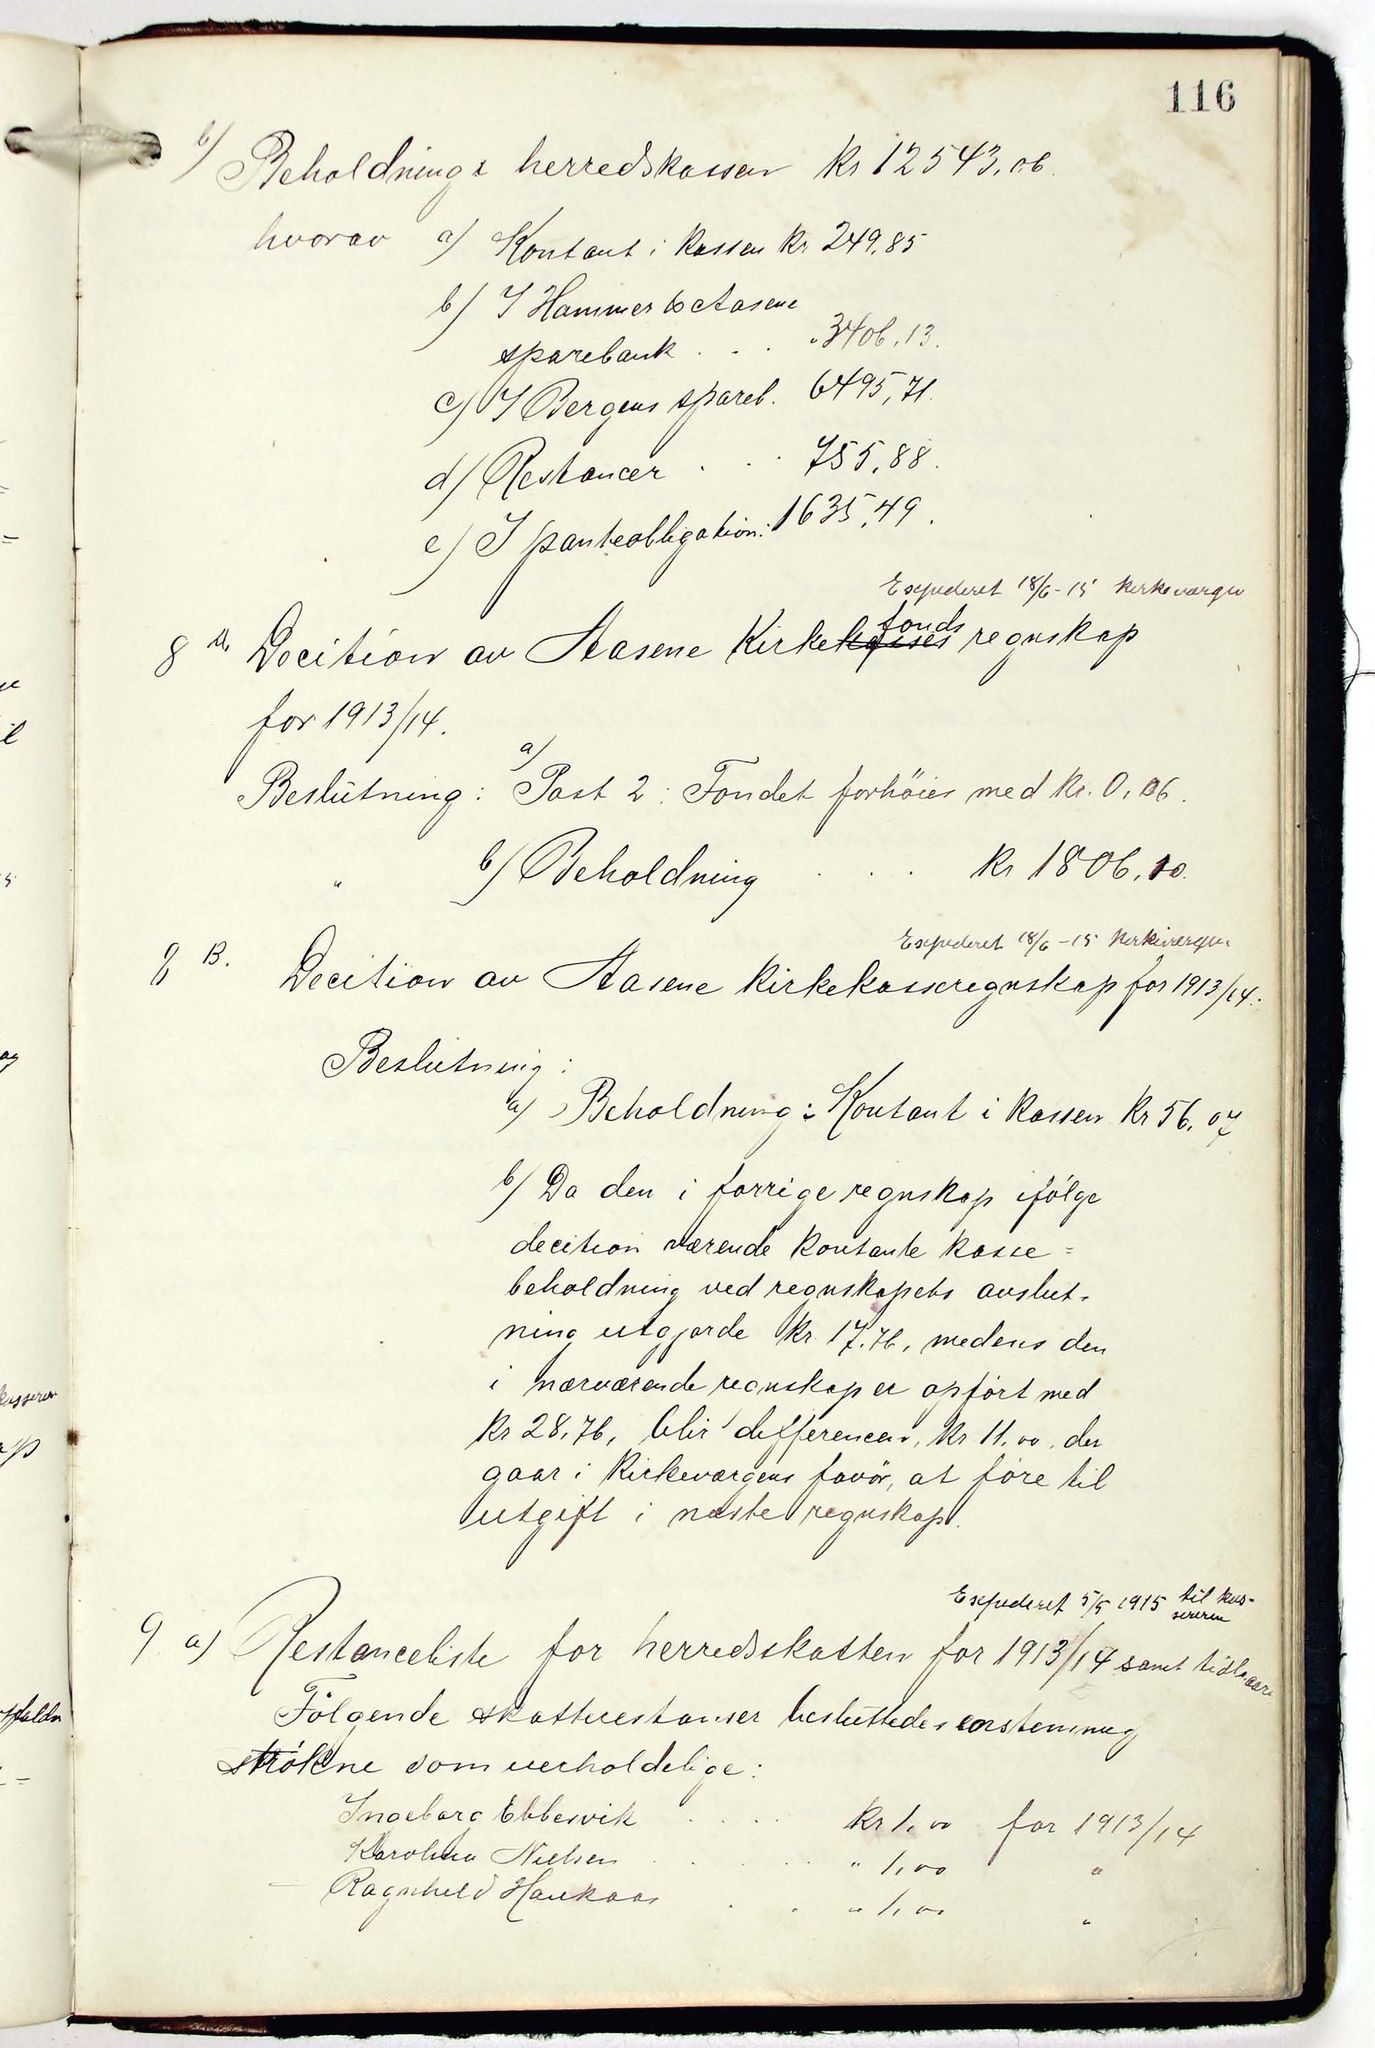 116
b/ Beholdning i herredskassen kr 12543,06.
hvorav a/ Kontant i kassen kr 249,85
b/ I Hammer & Aasene
sparebank . . . " 3406,13.
c/ I Bergens spareb. 6495,71.
d/ Restancer . . . 755,88.
e/ I panteobligation: 1635,49.
Expederet 18/6-15 kirkeværgen
fonds
8 A. Decition av Aasene Kirkekasses regnskap
for 1913/14.
Beslutning: a/ Post 2: Fondet forhöies med kr. 0,06.
" b/ Beholdning . . . kr 1806,10.
Expederet 18/6-15 kirkeværgen
8 B. Decition av Aasene kirkekasseregnskap for 1913/14.
Beslutning:
a/ Beholdning: Kontant i kassen kr 56,07
b/ Da den i forrige regnskap ifölge
decition værende kontante kasse=
beholdning ved regnskapets avslut-
ning utgjorde kr. 17,76, medens den
i nærværende regnskap er opfört med
kr 28,76, blir differencen, kr 11,00, der
gaar i kirkeværgens favör, at före til
utgift i næste regnskap.
Expederet 5/5 1915 til kas-
sereren
9 a) Restanceliste for herredsskatten for 1913/14 samt tidl. aar
Fölgende skatterestanser besluttedes enstemmig
strökne som uerholdelige:
Ingeborg Ebbesvik . . . . kr 1,00 for 1913/14
Karolina Nielsen . . . . " 1,00 "
Ragnhild Haukaas . . . " 1,00 "